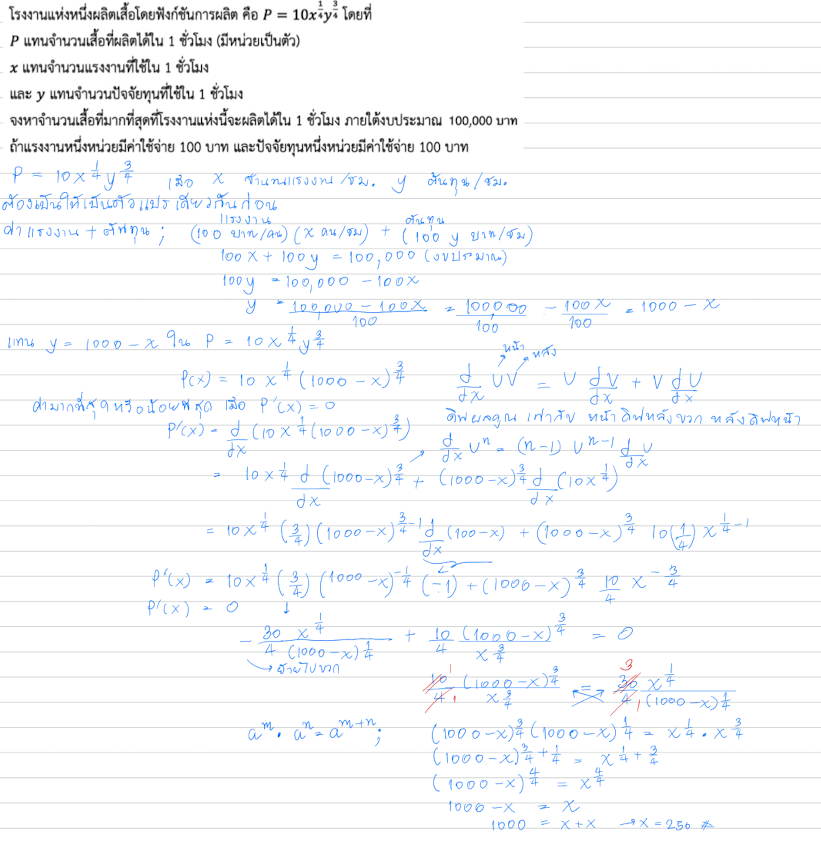 โรงงานแห่งหนึ่งผลิตเสื้อโดยฟังก์ชันการผลิต คือ P = 10x^{1/4}y^{3/4} โดยที่
P แทนจำนวนเสื้อที่ผลิตได้ใน 1 ชั่วโมง (มีหน่วยเป็นตัว)
x แทนจำนวนแรงงานที่ใช้ใน 1 ชั่วโมง
และ y แทนจำนวนปัจจัยทุนที่ใช้ใน 1 ชั่วโมง
จงหาจำนวนเสื้อที่มากที่สุดที่โรงงานแห่งนี้จะผลิตได้ใน 1 ชั่วโมง ภายใต้งบประมาณ 100,000 บาท
ถ้าแรงงานหนึ่งหน่วยมีค่าใช้จ่าย 100 บาท และปัจจัยทุนหนึ่งหน่วยมีค่าใช้จ่าย 100 บาท
P = 10x^{1/4}y^{3/4} เมื่อ x จำนวนแรงงาน/ชม. y ต้นทุน/ชม.
ต้องเป็นให้เป็นตัวแปรเดียวกันก่อน
แรงงาน ต้นทุน
ค่าแรงงาน + ต้นทุน ; (100 บาท/คน)(x คน/ชม) + (100 y บาท/ชม)
100x + 100y = 100,000 (งบประมาณ)
100y = 100,000 - 100x
y = \frac{100,000 - 100x}{100} = \frac{100000}{100} - \frac{100x}{100} = 1000 - x
แทน y = 1000 - x ใน P = 10x^{1/4}y^{3/4}
หน้า หลัง
P(x) = 10x^{1/4}(1000-x)^{3/4} \frac{d}{dx} UV = U\frac{dV}{dx} + V\frac{dU}{dx}
ค่ามากที่สุดหรือน้อยที่สุด เมื่อ P'(x) = 0 ดิฟผลคูณ เท่ากับ หน้าดิฟหลังบวก หลังดิฟหน้า
P'(x) = \frac{d}{dx}(10x^{1/4}(1000-x)^{3/4}) \frac{d}{dx}U^{n} = (n-1)U^{n-1}\frac{dU}{dx}
= 10x^{1/4}\frac{d}{dx}(1000-x)^{3/4} + (1000-x)^{3/4}\frac{d}{dx}(10x^{1/4})
= 10x^{1/4}(\frac{3}{4})(1000-x)^{3/4-1}\frac{d}{dx}(100-x) + (1000-x)^{3/4} 10(\frac{1}{4})x^{1/4-1}
P'(x) = 10x^{1/4}(\frac{3}{4})(1000-x)^{-1/4}(-1) + (1000-x)^{3/4}\frac{10}{4}x^{-3/4}
P'(x) = 0
-\frac{30}{4}\frac{x^{1/4}}{(1000-x)^{1/4}} + \frac{10}{4}\frac{(1000-x)^{3/4}}{x^{3/4}} = 0
ย้ายไปบวก
\frac{10}{4}\frac{(1000-x)^{3/4}}{x^{3/4}} = \frac{30}{4}\frac{x^{1/4}}{(1000-x)^{1/4}} 1 1 3 1
a^{m} \cdot a^{n} = a^{m+n} ; (1000-x)^{3/4}(1000-x)^{1/4} = x^{1/4} \cdot x^{3/4}
(1000-x)^{3/4+1/4} = x^{1/4+3/4}
(1000-x)^{4/4} = x^{4/4}
1000-x = x
1000 = x+x → x = 250 #